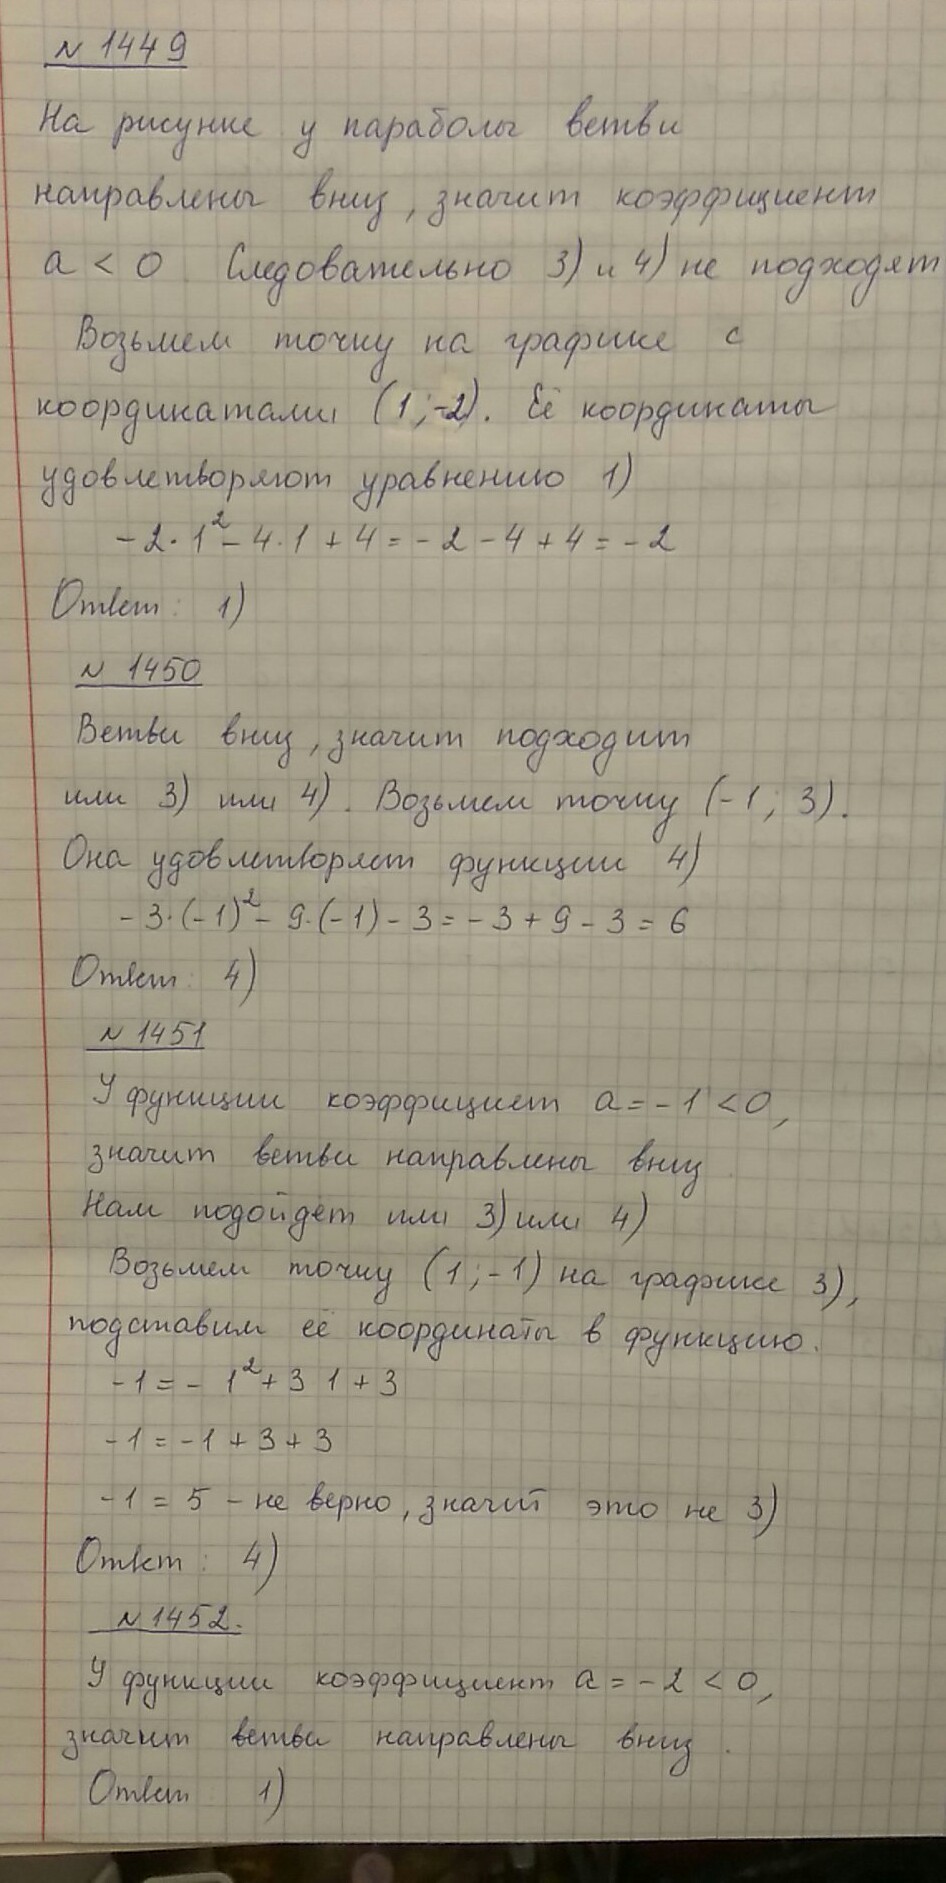 N 1449
На рисунке у параболы ветви
направлены вниз, значит коэффициент
a < 0 Следовательно 3) и 4) не подходят
Возьмем точку на графике с
координатами (1;-2). Её координаты
удовлетворяют уравнению 1)
-2·1²-4·1+4=-2-4+4=-2
Ответ: 1)
N 1450
Ветви вниз, значит подходит
или 3) или 4). Возьмем точку (-1; 3).
Она удовлетворяет функции 4)
-3·(-1)²-9·(-1)-3=-3+9-3=6
Ответ: 4)
N 1451
У функции коэффициент a=-1<0,
значит ветви направлены вниз.
Нам подойдёт или 3) или 4)
Возьмем точку (1;-1) на графике 3),
подставим её координаты в функцию.
-1=-1²+3 1+3
-1=-1+3+3
-1=5 - не верно, значит это не 3)
Ответ: 4)
N 1452.
У функции коэффициент a=-2<0,
значит ветви направлены вниз.
Ответ 1)